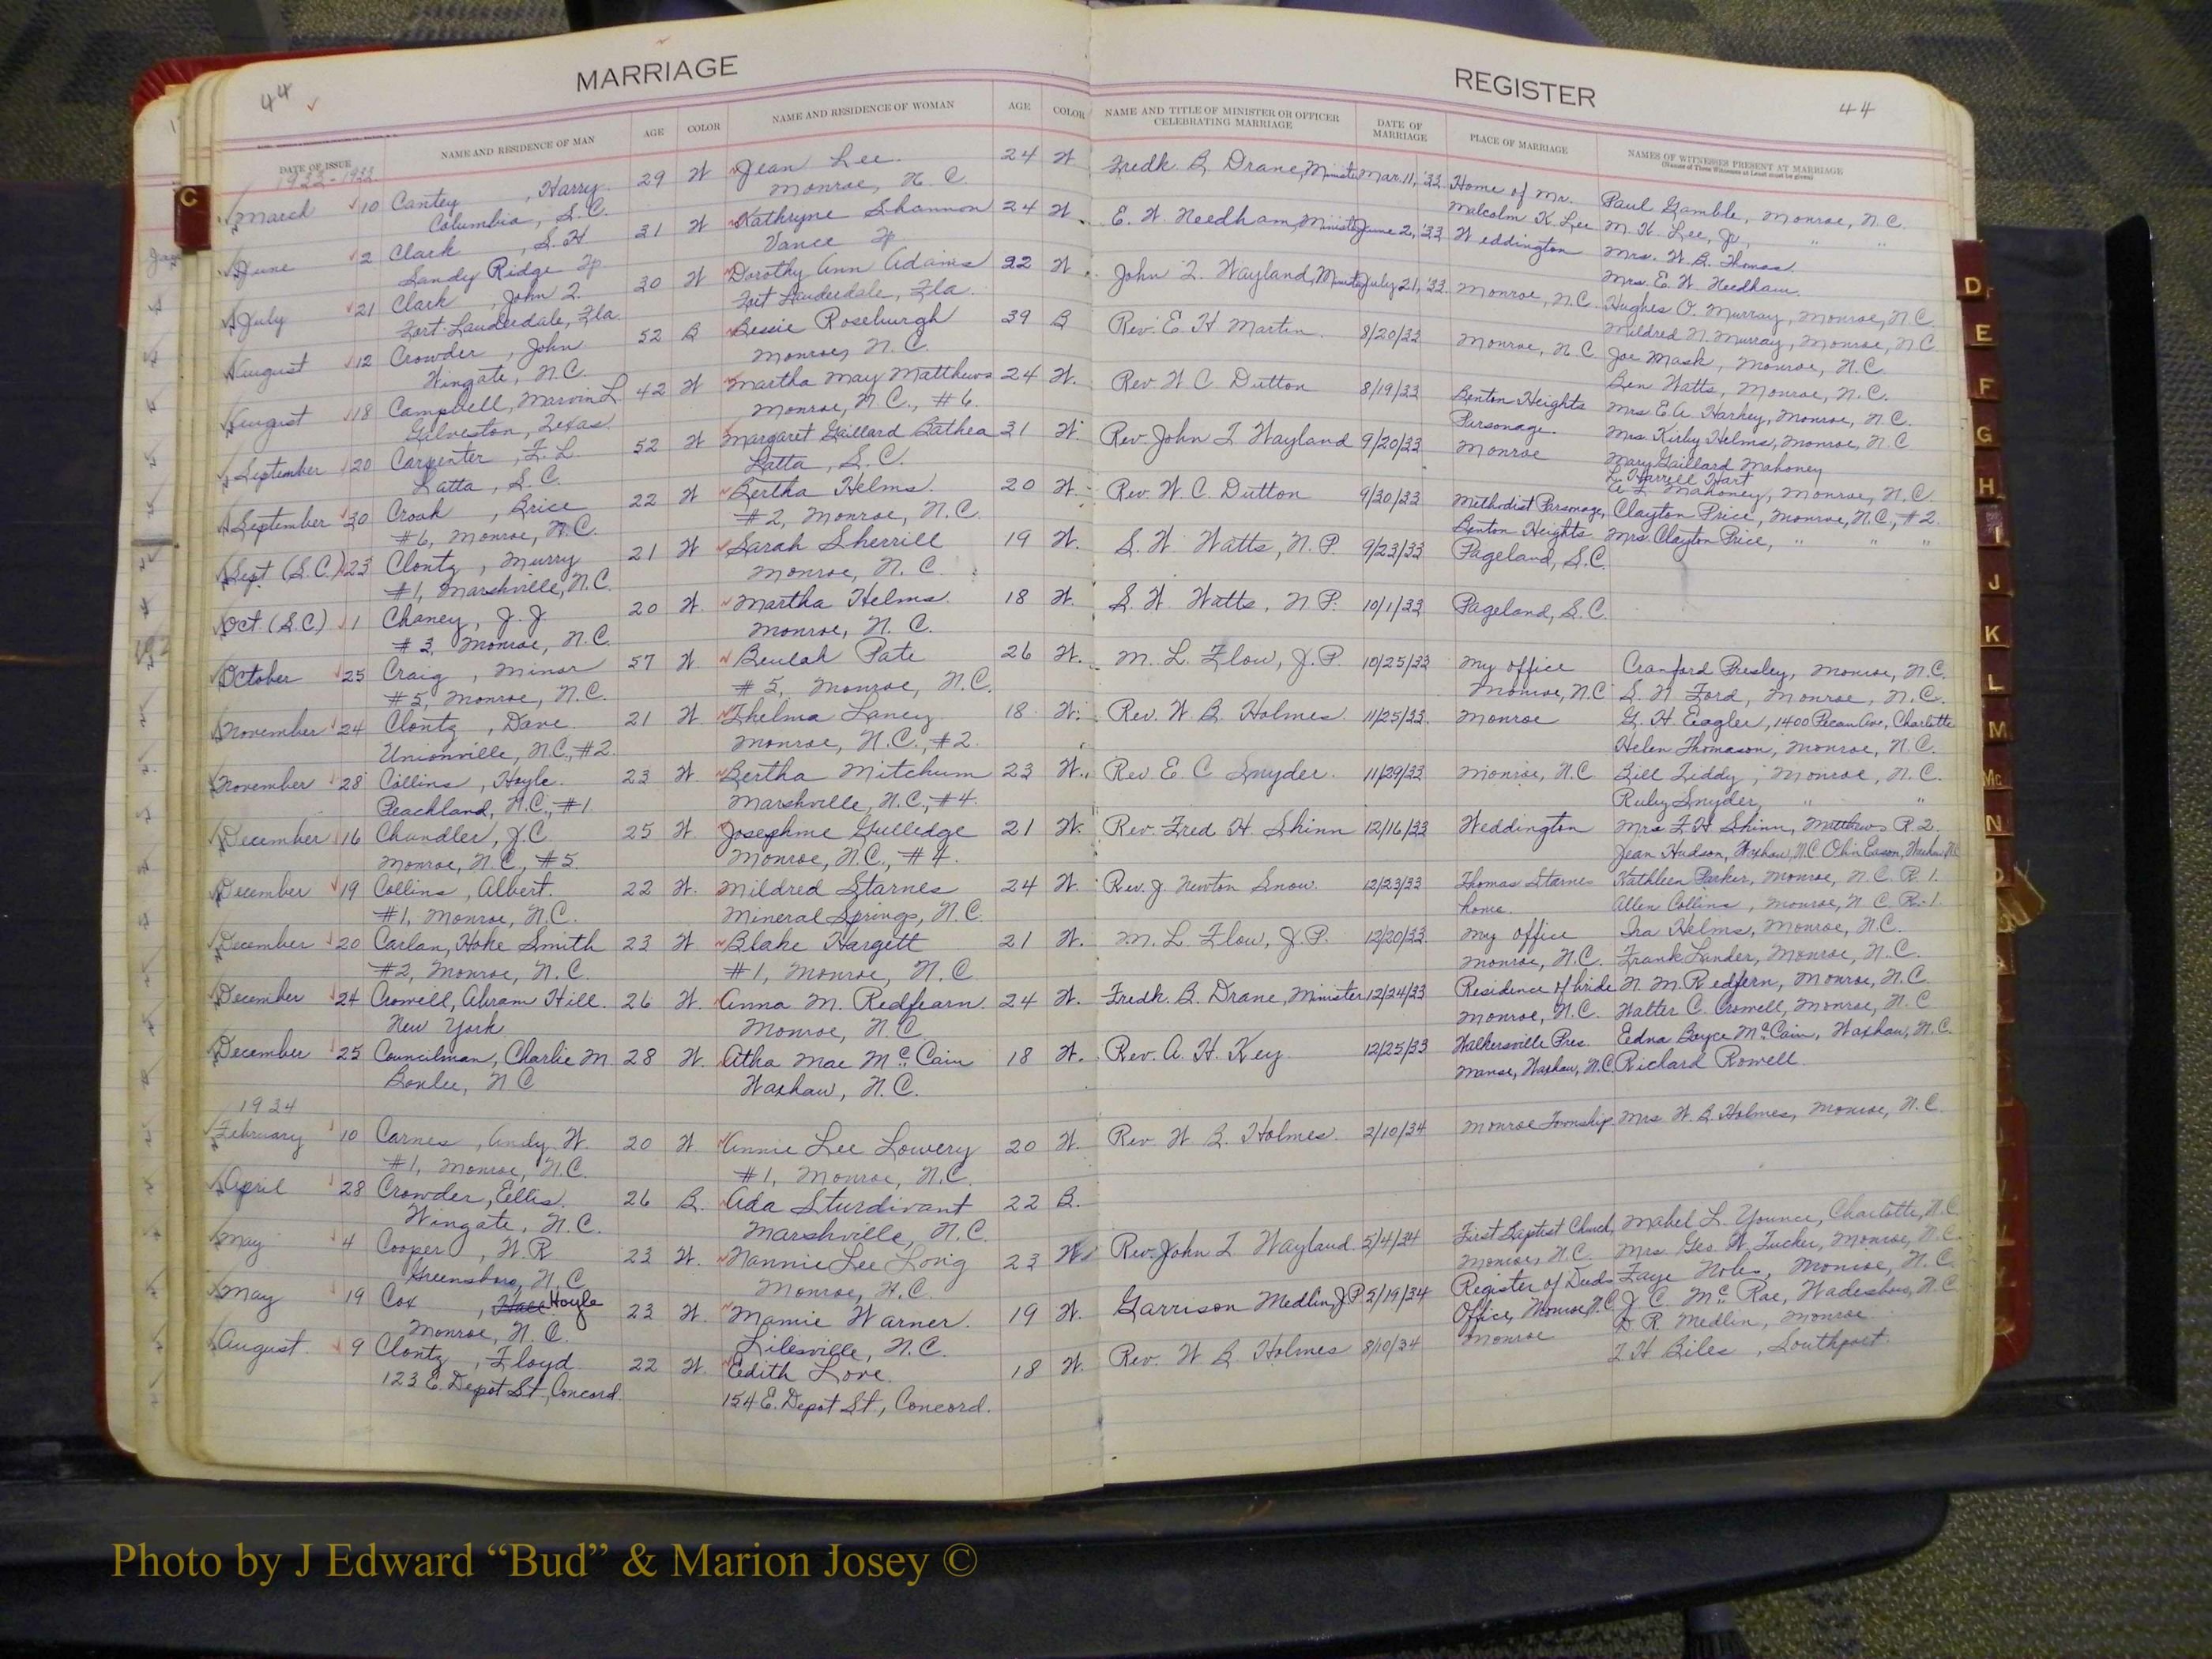 MARRIAGE REGISTER
44 44
DATE OF ISSUE NAME AND RESIDENCE OF MAN AGE COLOR NAME AND RESIDENCE OF WOMAN AGE COLOR NAME AND TITLE OF MINISTER OR OFFICER CELEBRATING MARRIAGE DATE OF MARRIAGE PLACE OF MARRIAGE NAMES OF WITNESSES PRESENT AT MARRIAGE
(Names of Three Witnesses at Least must be given)
1933-1933
March 10 Cantey, Harry 29 W Jean Lee 24 W Fredk B Drane, Minister Mar. 11, '33 Home of Mr. Paul Gamble, Monroe, N.C.
Columbia, S.C. Monroe, N.C. Malcolm K. Lee M. K. Lee, Jr., " "
June 2 Clark, S. H 31 W Kathryne Shannon 24 W. E. W. Needham, Minister June 2, '33 Weddington Mrs. W. B. Thomas
Sandy Ridge Tp Vance Tp Mrs. E. W. Needham.
July 21 Clark, John T. 30 W Dorothy Ann Adams 22 W. John T. Wayland, Minister July 21, '33. Monroe, N.C. Hughes O. Murray, Monroe, N.C.
Fort Lauderdale, Fla Fort Lauderdale, Fla. Mildred N. Murray, Monroe, N.C
August 12 Crowder, John 52 B Bessie Roseburgh 39 B Rev. E. H Martin. 8/20/33 Monroe, N.C. Joe Mask, Monroe, N.C.
Wingate, N.C. Monroe, N.C. Ben Watts, Monroe, N.C.
August 18 Campbell, Marvin L 42 W Martha May Matthews 24 W. Rev. W C. Dutton 8/19/33 Benton Heights Mrs. E. A. Harkey, Monroe, N.C.
Galveston, Texas Monroe, N.C., #6. Parsonage. Mrs. Kirby Helms, Monroe, N.C
September 20 Carpenter, F. L. 52 W Margaret Gaillard Bethea 31 W. Rev. John T Wayland 9/20/33 Monroe Mary Gaillard Mahoney
L. Harrell Hart
Latta, S.C. Latta, S.C. Mahoney, Monroe, N.C.
September 30 Crook, Brice 22 W Bertha Helms. 20 W. Rev. W. C. Dutton 9/30/33 Methodist Parsonage, Clayton Price, Monroe, N.C., #2.
#6, Monroe, N.C. #2, Monroe, N.C. Benton Heights Mrs. Clayton Price, " " "
Sept (S.C.) 23 Clontz, Murry 21 W Sarah Sherrill 19 W. S. W. Watts, N.P. 9/23/33 Pageland, S.C.
#1, Marshville, N.C. Monroe, N.C
Oct (S.C.) 1 Chaney, J. J. 20 W. Martha Helms. 18 W. S. W Watts, N.P. 10/1/33 Pageland, S.C.
#3, Monroe, N.C. Monroe, N.C.
October 25 Craig, Minor 57 W. Beulah Pate 26 W. M. L. Flow, J.P. 10/25/33 My office Cranford Presley, Monroe, N.C.
#5, Monroe, N.C. #5, Monroe, N.C. Monroe, N.C S. N. Ford, Monroe, N.C.
November 24 Clontz, Dave 21 W. Thelma Laney 18 W. Rev. W. B. Holmes. 11/25/33. Monroe G. H. Eagler, 1400 Pecan Ave, Charlotte
Unionville, N.C., #2. Monroe, N.C., #2. Helen Thomason, Monroe, N.C.
November 28 Collins, Hoyle. 23 W Bertha Mitchum 23 W. Rev. E. C Snyder. 11/29/33 Monroe, N.C. Bill Liddy, Monroe, N.C.
Peachland, N.C., #1 Marshville, N.C., #4. Ruby Snyder, " "
December 16 Chandler, J. C 25 W. Josephine Gulledge 21 W. Rev. Fred H. Shinn 12/16/33 Weddington Mrs. F. H Shinn, Matthews R. 2.
Monroe, N.C., #5 Monroe, N.C., #4. Jean Hudson, Waxhaw, N.C. Olin Eason, Waxhaw, N.C
December 19 Collins, Albert. 22 W. Mildred Starnes 24 W. Rev. J. Newton Snow. 12/23/33 Thomas Starnes Kathleen Parker, Monroe, N.C. R. 1.
#1, Monroe, N.C. Mineral Springs, N.C. home. Allen Collins, Monroe, N.C. R-1
December 20 Carlan, Hoke Smith 23 W Blake Hargett 21 W. M. L. Flow, J.P. 12/20/33 My office Ira Helms, Monroe, N.C.
#2, Monroe, N.C. #1, Monroe, N.C Monroe, N.C. Frank Lander, Monroe, N.C.
December 24 Crowell, Abram Hill. 26 W. Anna M. Redfearn 24 W. Fredk. B. Drane, Minister 12/24/33 Residence of bride N. M. Redfern, Monroe, N.C.
New York Monroe, N.C. Monroe, N.C. Walter C. Crowell, Monroe, N.C
December 25 Councilman, Charlie M. 28 W. Atha Mae McCain 18 W. Rev. A. H. Key. 12/25/33 Walkersville Pres. Eedna Boyce McCain, Waxhaw, N.C.
Bonlee, N C Waxhaw, N.C. Manse, Waxhaw, N.C. Richard Rowell
1934
February 10 Carnes, Andy W. 20 W Annie Lee Lowery 20 W. Rev. W B Holmes. 2/10/34 Monroe Township. Mrs. W. B Holmes, Monroe, N.C.
#1, Monroe, N.C. #1, Monroe, N.C.
April 28 Crowder, Ellis. 26 B. Ada Sturdivant 22 B.
Wingate, N.C. Marshville, N.C.
May 4 Cooper, W. R 23 W. Nannie Lee Long 23 W Rev. John T Wayland 5/4/34 First Baptist Church, Mabel L. Younce, Charlotte, N.C
Greensboro, N.C Monroe, N.C. Monroe, N.C. Mrs. Geo. W. Tucker, Monroe, N.C.
May 19 Cox, Hoyle 23 W. Mamie Warner. 19 W. Garrison Medlin, J.P 5/19/34 Register of Deeds Faye Noles, Monroe, N.C.
Monroe, N.C. Lilesville, N.C. Office, Monroe, N.C. J. C. McRae, Wadesboro, N.C
August 9 Clontz, Floyd 22 W. Edith Love. 18 W. Rev. W B. Holmes 8/10/34 Monroe D. R. Medlin, Monroe
123 E. Depot St., Concord. 154 E. Depot St., Concord. T H Biles, Southport.
C
D
E
F
G
H
I
J
K
L
M
Mc
N
Photo by J Edward “Bud” & Marion Josey ©